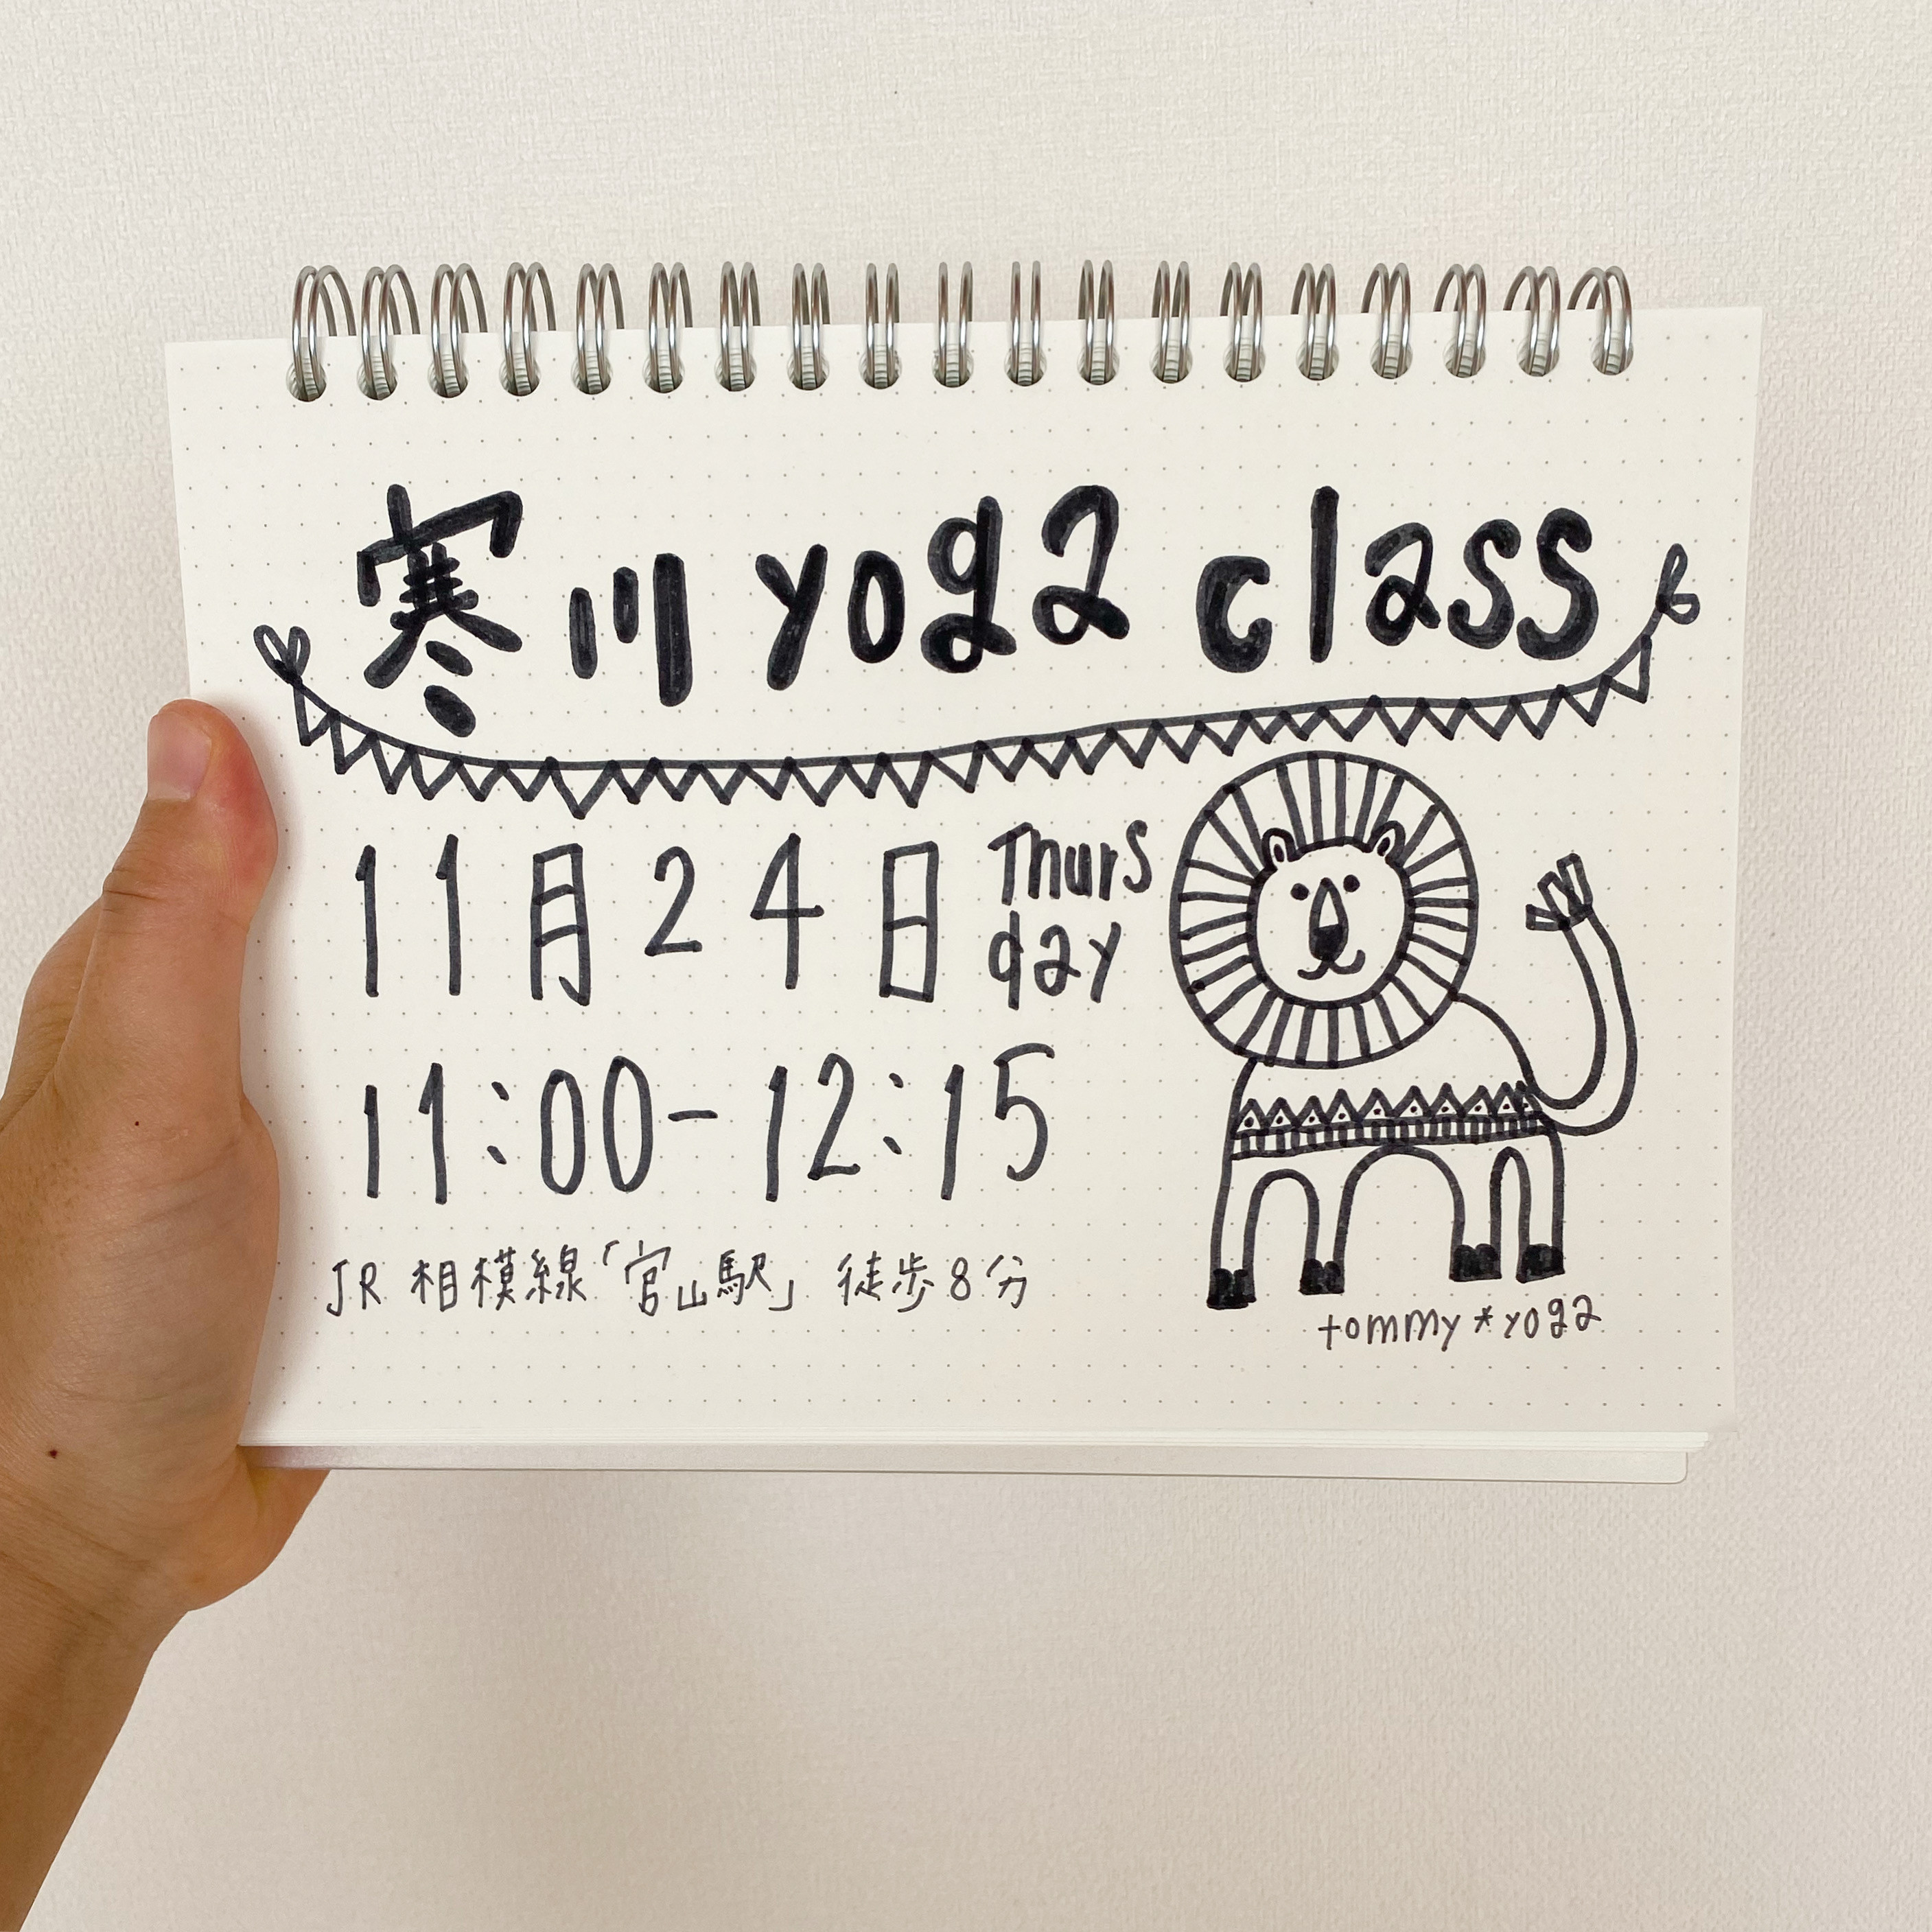 寒川 yoga class
11月24日 Thurs
day
11:00-12:15
JR 相模線「宮山駅」 徒歩8分
tommy*yoga